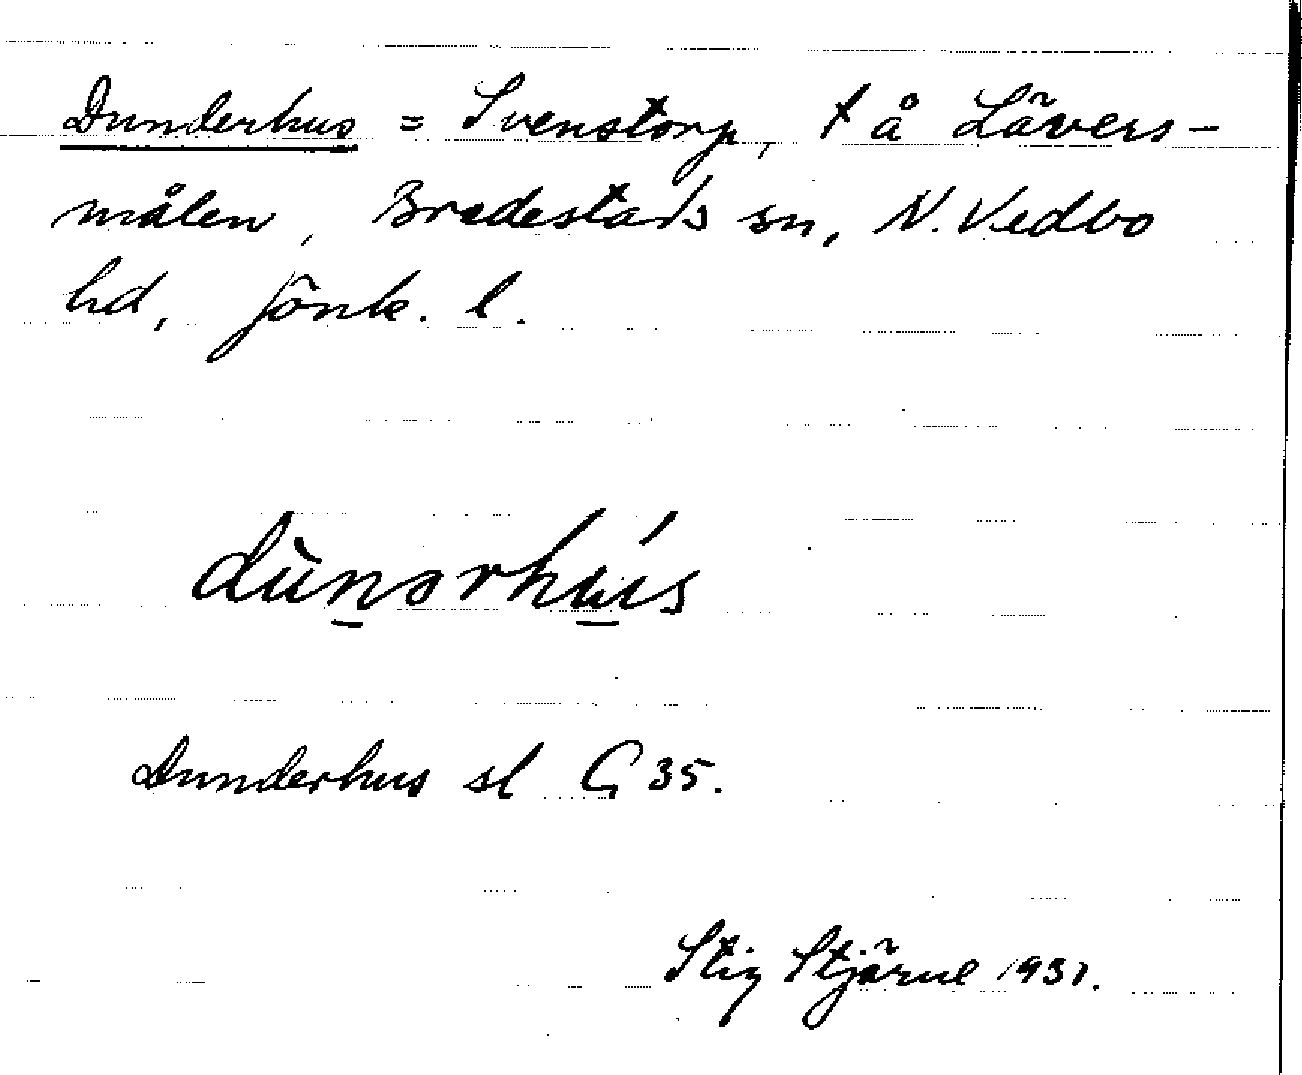 Dunderhus = Svenstorp, t å Lävers-
målen, Bredestads sn, N. Vedbo
hd, Jönk. l.
dùn̲ɘrhú̲s
Dunderhus sl G 35.
Stig Stjärne 1931.